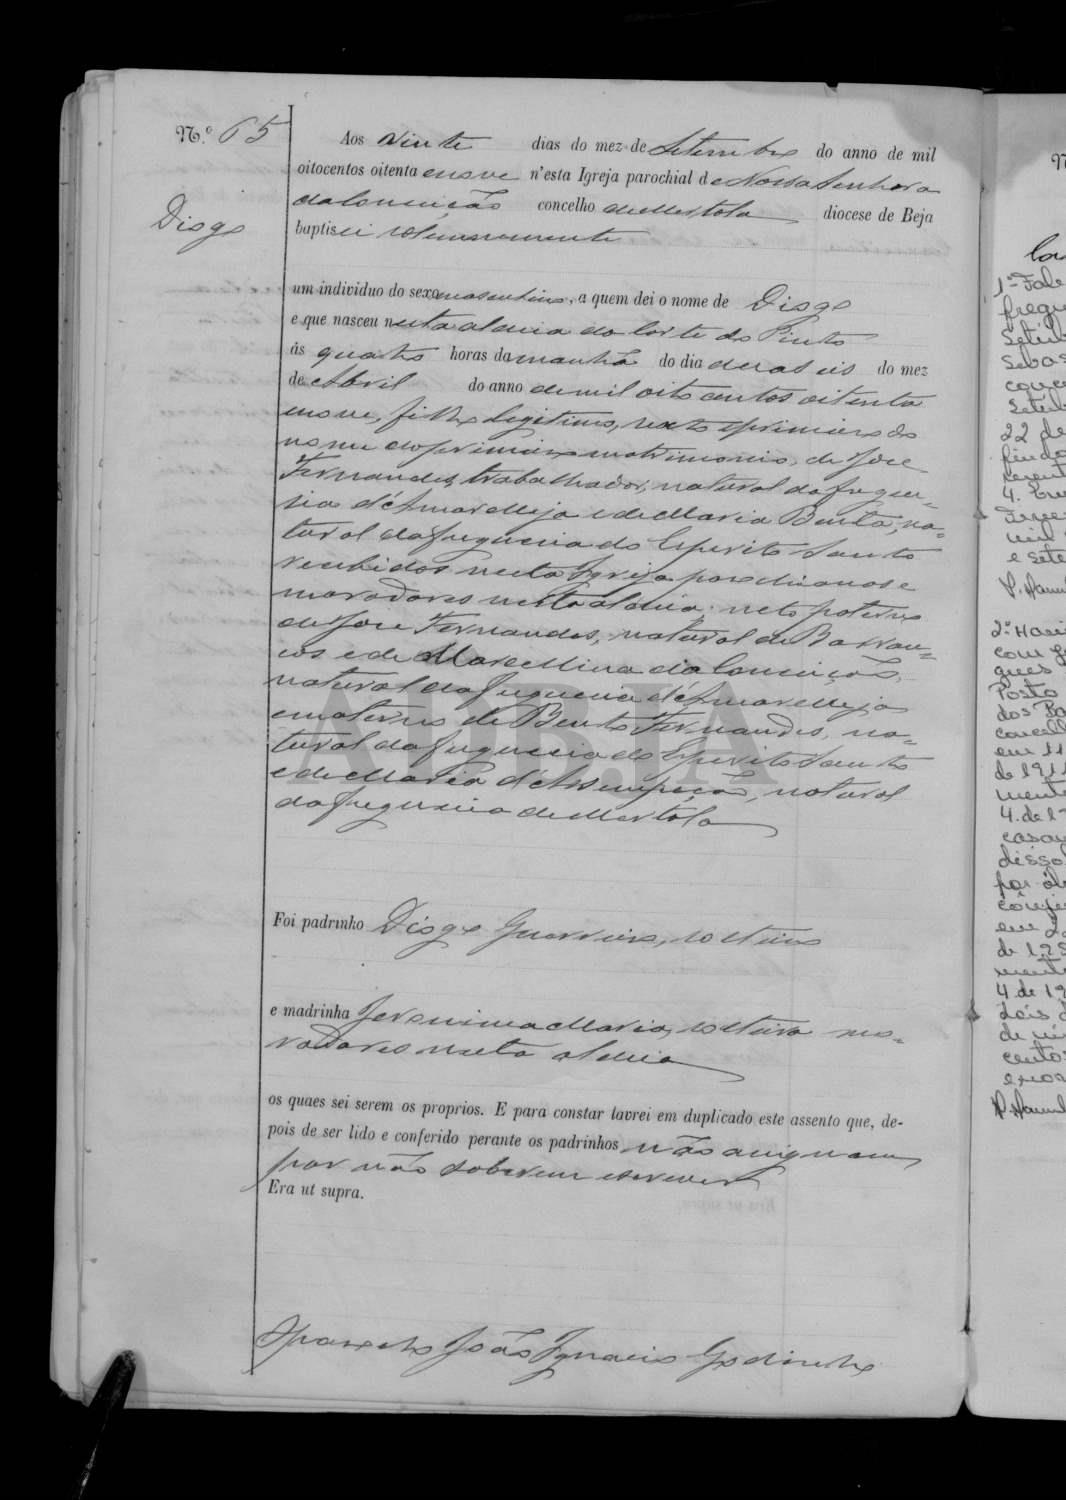 N.º 65
Diogo
Aos vinte dias do mez de Setembro do anno de mil
oitocentos oitenta e nove n'esta Igreja parochial de Nossa Senhora
da Conceição concelho de Mertola diocese de Beja
baptisei solemnemente
um individuo do sexo masculino, a quem dei o nome de Diogo
e que nasceu nesta aldeia da Corte do Pinto
ás quatro horas da manhã do dia deraseis do mez
de Abril do anno de mil oito centos oitenta
e nove, filho legitimo, sexto e primeiro do
nome do primeiro matrimonio, de José
Fernandes, trabalhador, natural da fregue=
sia d'Amarelleja e de Maria Benta, na=
tural da freguesia do Espirito Santo
recebidos nesta Igreja parochianos e
moradores nesta aldeia; neto paterno
de José Fernandes, natural de Barran=
cos e de Marcellina da Conceição,
natural da freguesia d'Amarelleja
e materno de Bento Fernandes, na=
tural da freguesia do Espirito Santo
e de Maria d'Assumpção, natural
da freguesia de Mertola
Foi padrinho Diogo Guerreiro, solteiro
e madrinha Jeronima Maria, solteira mo=
radores nesta aldeia
os quaes sei serem os proprios. E para constar lavrei em duplicado este assento que, de-
pois de ser lido e conferido perante os padrinhos não assignam
por não saberem escrever
Era ut supra.
O parocho João Ignacio Godinho
ADBJA
1º Fale
fregu
Setub
Sebas
conce
Setub
22 de
4.
e sete
2º
com
ques
Posto
dos Ba
concell
em 11
de 1911
mente
4. de 1
casou
disso
por ób
cônju
em 2
de 19
mente
4 de 19
dois d
de mi
centos